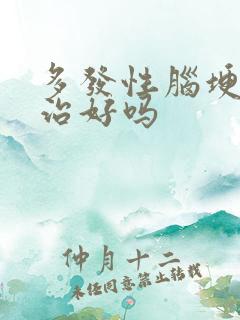 多發性腦埂
治好吗
仲月十二
未经同意禁止转载